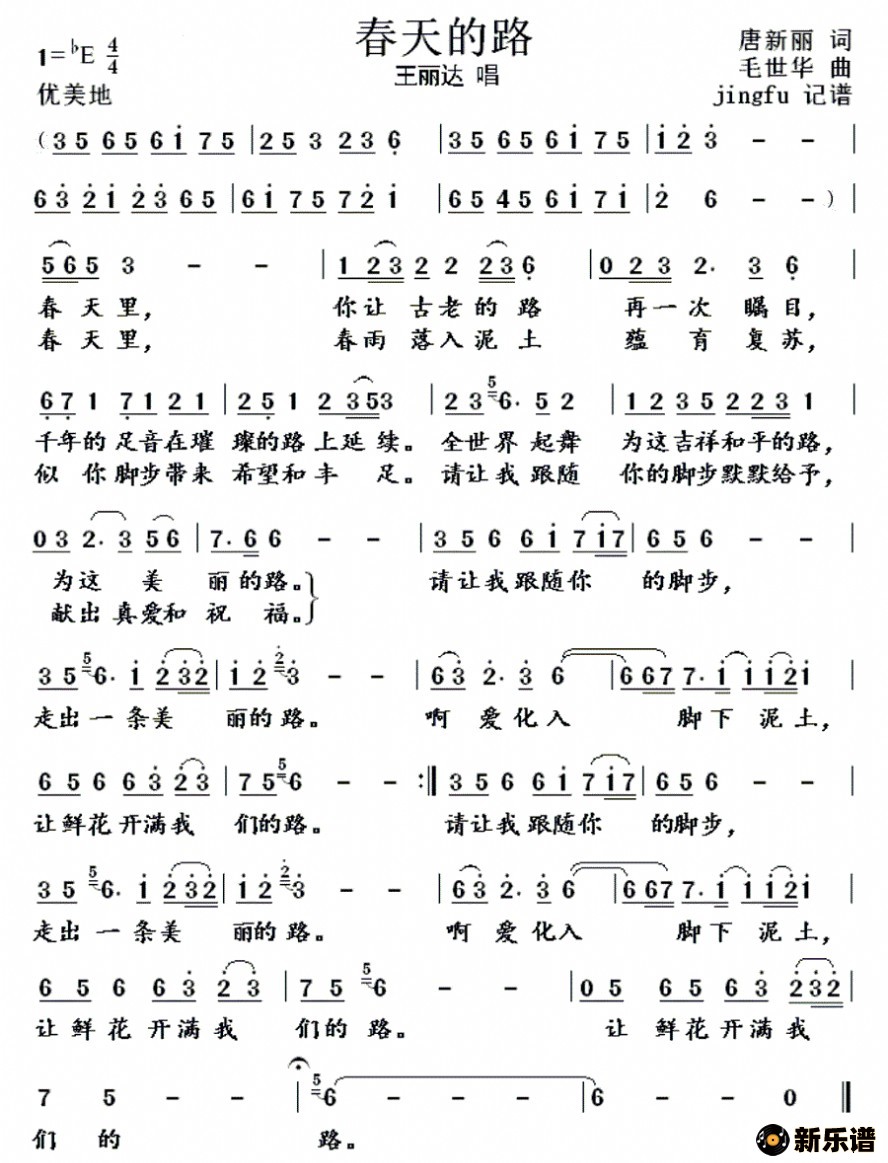 春天的路
1=♭E 4/4
唐新丽 词
王丽达 唱
毛世华 曲
优美地
jingfu 记谱
(3 5 6 5 6 i 7 5 | 2 5 3 2 3 6 | 3 5 6 5 6 i 7 5 | i 2 3 - - |
6 3 2 i 2 3 6 5 | 6 i 7 5 7 2 i | 6 5 4 5 6 i 7 i | 2 6 - - ) |
5 6 5 3 - - | 1 2 3 2 2 2 3 6 | 0 2 3 2. 3 6 |
春天里, 你让古老的路 再一次瞩目,
春天里, 春雨落入泥土 蕴育复苏,
6 7 1 7 1 2 1 | 2 5 1 2 3 5 3 | 2 3 5 6. 5 2 | 1 2 3 5 2 2 3 1 |
千年的足音在璀 璨的路上延续。 全世界起舞 为这吉祥和平的路,
似你脚步带来 希望和丰足。 请让我跟随 你的脚步默默给予,
0 3 2. 3 5 6 | 7. 6 6 - - | 3 5 6 6 i 7 i 7 | 6 5 6 - - |
为这美 丽的路。 请让我跟随你 的脚步,
献出真爱和祝 福。
3 5 5 6. i 2 3 2 | i 2 2 3 - - | 6 3 2. 3 6 | 6 6 7 7. i i i 2 i |
走出一条美 丽的路。 啊爱化入 脚下泥土,
6 5 6 6 3 2 3 | 7 5 5 6 - - :‖ 3 5 6 6 i 7 i 7 | 6 5 6 - - |
让鲜花开满我 们的路。 请让我跟随你 的脚步,
3 5 5 6. i 2 3 2 | i 2 2 3 - - | 6 3 2. 3 6 | 6 6 7 7. i i i 2 i |
走出一条美 丽的路。 啊爱化入 脚下泥土,
6 5 6 6 3 2 3 | 7 5 5 6 - - | 0 5 6 5 6 3 2 3 2 |
让鲜花开满我 们的路。 让鲜花开满我
7 5 - - | 5 6 - - - | 6 - - 0 ‖
们的 路。
新乐谱